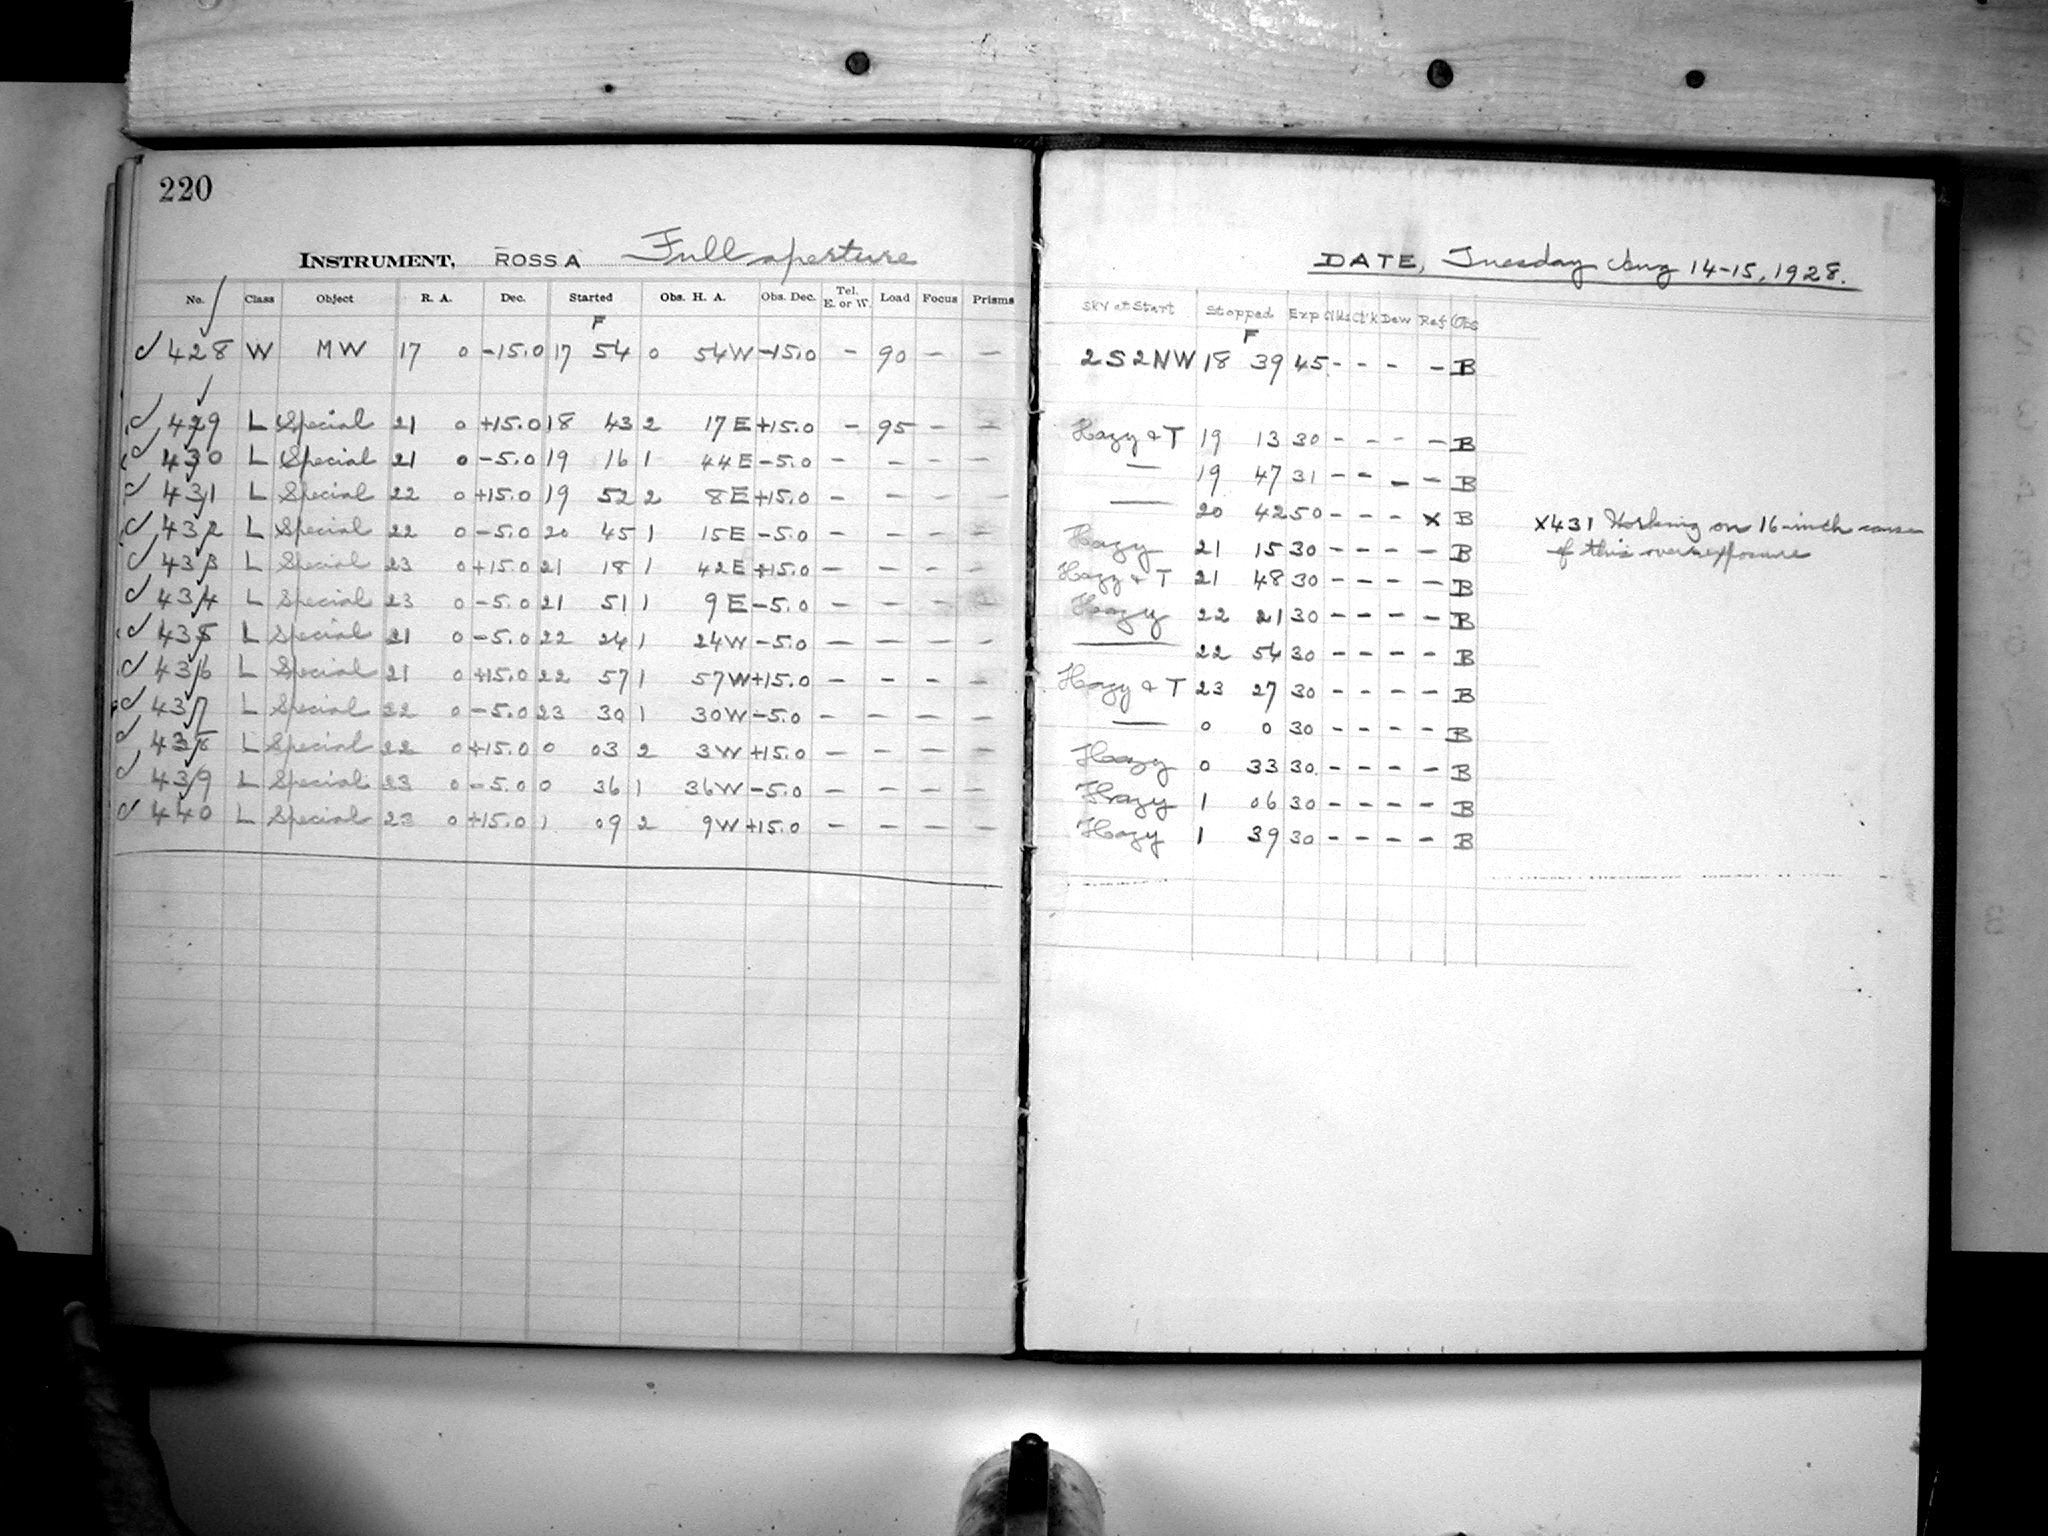 220
INSTRUMENT, ROSS A Full aperture
No. Class Object R. A. Dec. Started Obs. H. A. Obs. Dec. Tel. E. or W. Load Focus Prisms
F
428 W MW 17 0 -15.0 17 54 0 54W -15.0 - 90 - -
429 L Special 21 0 +15.0 18 43 2 17E +15.0 - 95 - -
430 L Special 21 0 -5.0 19 16 1 44E -5.0 - - - -
431 L Special 22 0 +15.0 19 52 2 8E +15.0 - - - -
432 L Special 22 0 -5.0 20 45 1 15E -5.0 - - - -
433 L Special 23 0 +15.0 21 18 1 42E +15.0 - - - -
434 L Special 23 0 -5.0 21 51 1 9E -5.0 - - - -
435 L Special 21 0 -5.0 22 24 1 24W -5.0 - - - -
436 L Special 21 0 +15.0 22 57 1 57W +15.0 - - - -
437 L Special 22 0 -5.0 23 30 1 30W -5.0 - - - -
438 L Special 22 0 +15.0 0 03 2 3W +15.0 - - - -
439 L Special 23 0 -5.0 0 36 1 36W -5.0 - - - -
440 L Special 23 0 +15.0 1 09 2 9W +15.0 - - - -
DATE, Tuesday Aug 14-15, 1928.
Sky at Start Stopped Exp Clds Cl'k Dew Ref Obs
F
2S2NW 18 39 45 - - - - B
Hazy & T 19 13 30 - - - - B
— 19 47 31 - - - - B
— 20 42 50 - - - X B
Hazy 21 15 30 - - - - B
Hazy & T 21 48 30 - - - - B
Hazy 22 21 30 - - - - B
— 22 54 30 - - - - B
Hazy & T 23 27 30 - - - - B
— 0 0 30 - - - - B
Hazy 0 33 30 - - - - B
Hazy 1 06 30 - - - - B
Hazy 1 39 30 - - - - B
X431 Working on 16-inch cause
of this over exposure